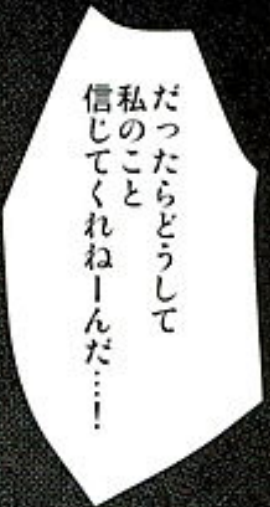 だったらどうして
私のこと
信じてくれねーんだ…！